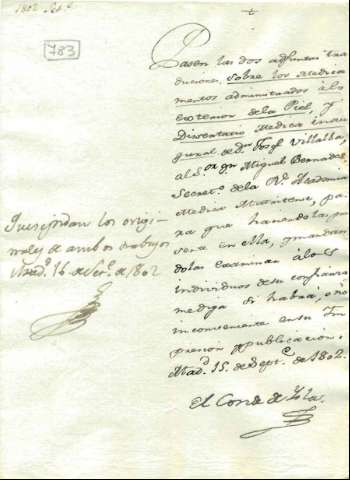 1802 Set.e
783
Pasen las dos adjuntas tra
duciones, sobre los Medica
mentos administrados á lo
exterior de la Piel, y
Dissertacio Medica inau
gural de dn. Josef Villalba,
al Sor. dn. Miguel Bernades,
Secreto. de la Rl. Academia
Medica Matritense, pa
ra que
sera en ella, y mandan
dolas examinar á los
individuos de su confianza
me diga si habrá, ó no
inconveniente en su Im
presion y publicacion.
Madd. 15. de Septe. de 1802.
El Conde de Isla.
los origi
nales de ambos trabajos
Madd. 16 de Sere. de 1802